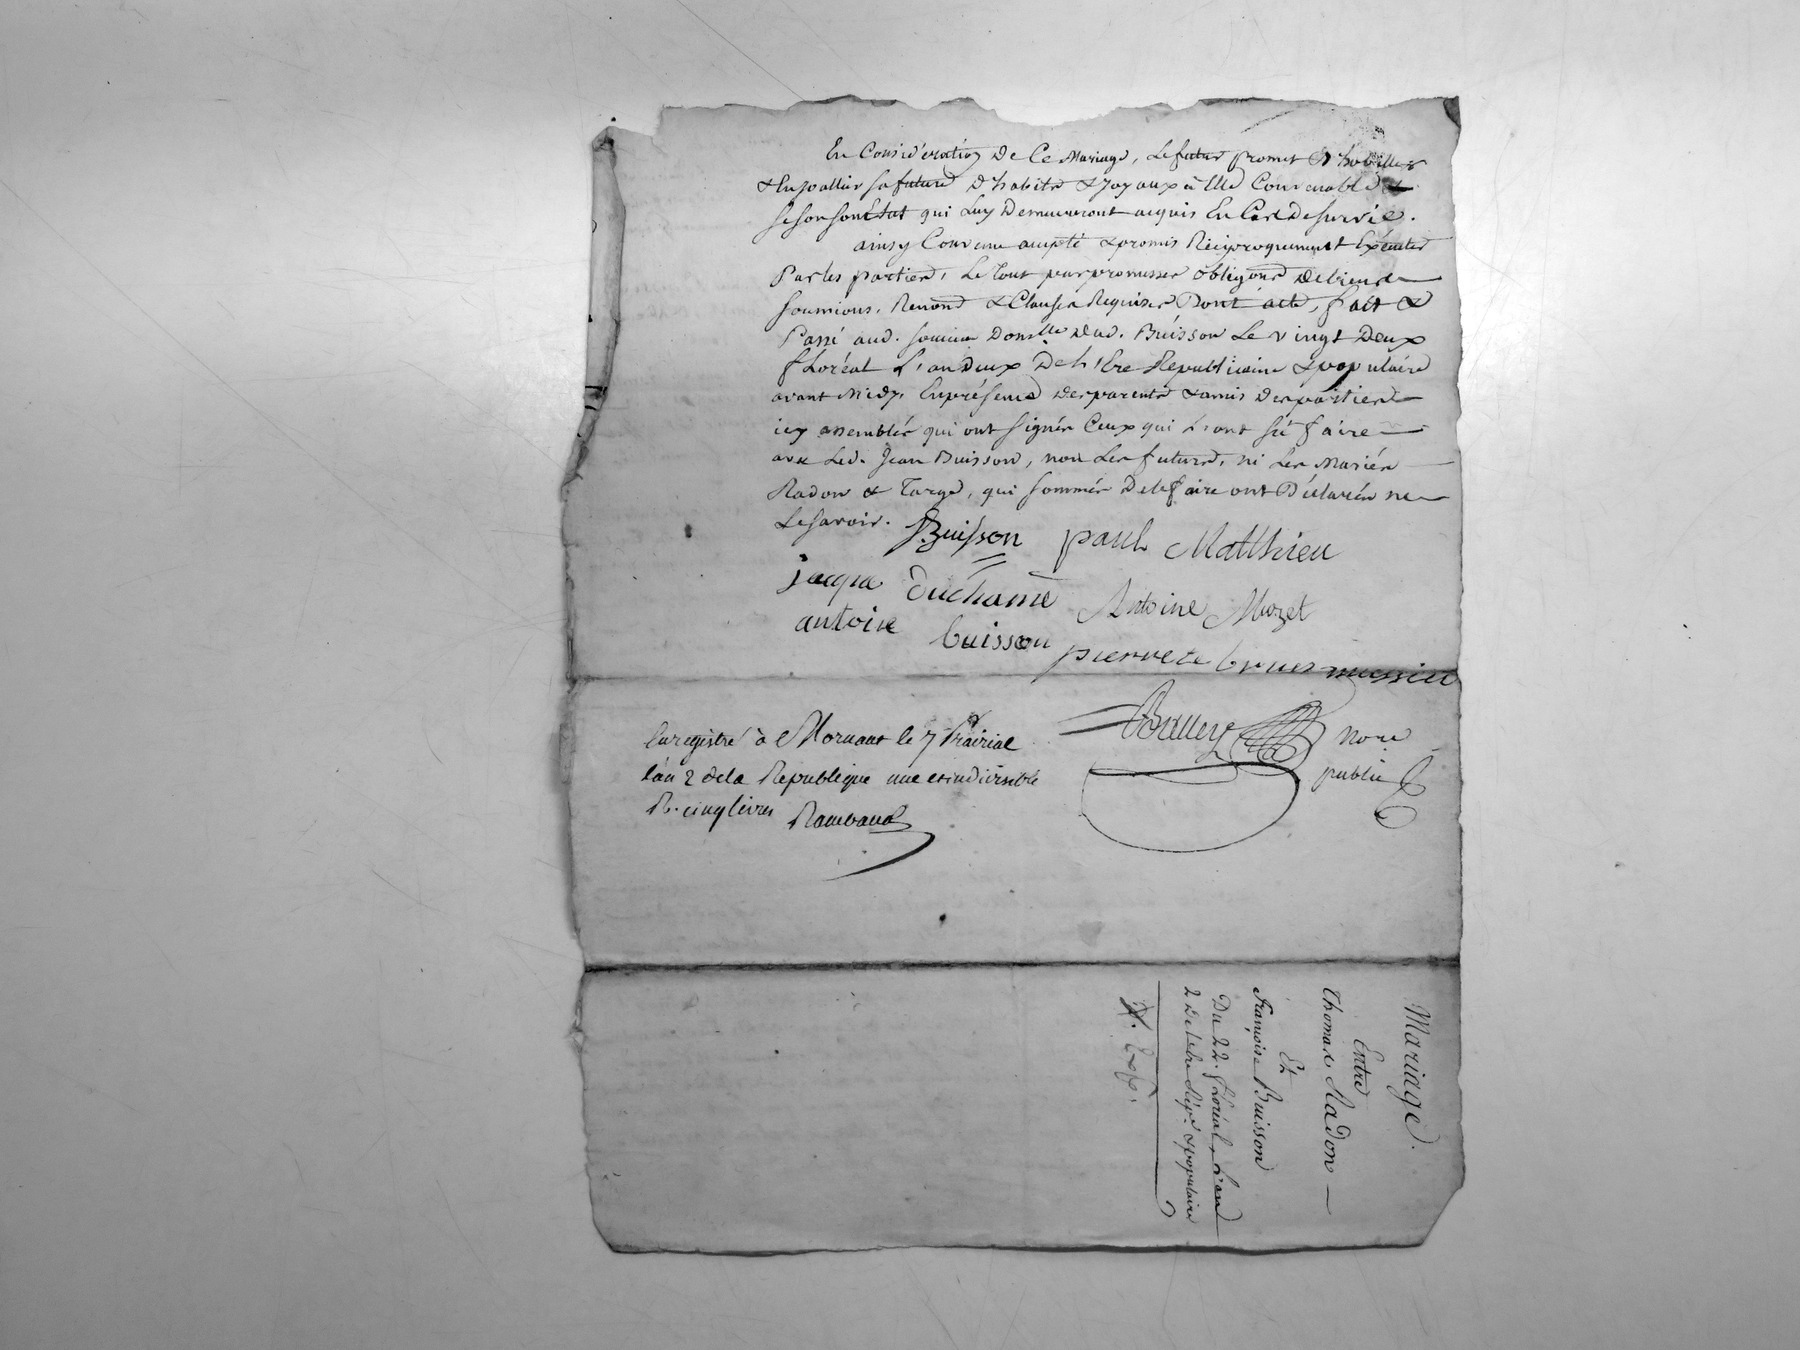 En Considération De Ce Mariage, Le futur promet D'habiller
& Enjoaller sa future D'habits & Joyaux à Elle Convenable &
selon son Etat qui Luy Demeureront acquis En Cas De survie.
ainsy Convenu accepté & promis Réciproquement Exécuter
Par les parties, Le tout par promesses obligons De biens
soumions, Renons & Clauses Requises Dont acte, fait &
Passé aud. Domlle dud. Buisson Le vingt Deux
floréal L'an Deux De L'Ere Républicaine & populaire
avant Midy, En présence des parents & amis Des parties
icy assemblés qui ont signés Ceux qui L'ont sçu faire
avec Led. Jean Buisson, non Les futurs, ni Les Mariés
Radon & Targe, qui sommés De le faire ont Déclarés ne
Le savoir. Buisson paul Matthieu
jacque duchamé Antoine Mozet
antoine buisson
pierre
noire
public
Enregistré à Mornant le 7 Prairial
l'an 2 de la Republique une et indivisible
R. cinq livres Rambaud
Mariage.
Entre
Thomas Radon
Et
Françoise Buisson
Du 22. floréal, L'an
2 De L'ere Répne & populaire